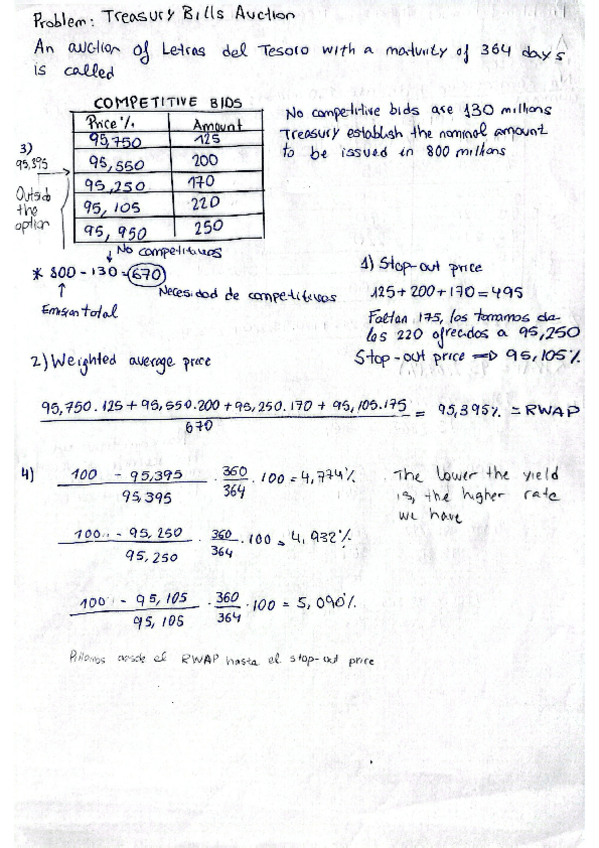 Problem: Treasury Bills Auction
An auction of Letras del Tesoro with a maturity of 364 days
is called
COMPETITIVE BIDS
Price % Amount
95,750 125
95,550 200
95,250 170
95,105 220
95,950 250
No competitive bids are 130 millions
Treasury establish the nominal amount
to be issued in 800 millions
3)
95,395
Outside
the
option
No competitivos
* 800 - 130 = 670
Necesidad de competitivos
Emision total
1) Stop-out price
125 + 200 + 170 = 495
Faltan 175, los tomamos de
los 220 ofrecidos a 95,250
Stop-out price => 95,105%
2) Weighted average price
95,750.125 + 95,550.200 + 95,250.170 + 95,105.175 = 95,395% = RWAP
670
4) 100 - 95,395 . 360 . 100 = 4,774%
95,395 364
The lower the yield
is, the higher rate
we have
100 - 95,250 . 360 . 100 = 4,932%
95,250 364
100 - 95,105 . 360 . 100 = 5,090%
95,105 364
desde el RWAP hasta el stop-out price